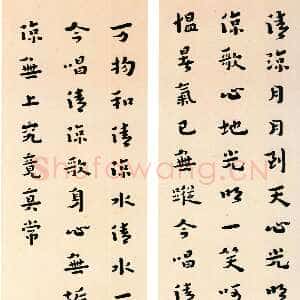 清涼月月到天心光明
涼歌心地光明一笑呵
慍暑氣已無蹤今唱清
万物和清涼水清水一
今唱清涼歌身心無垢
涼無上究竟真常
Shufawang.CN